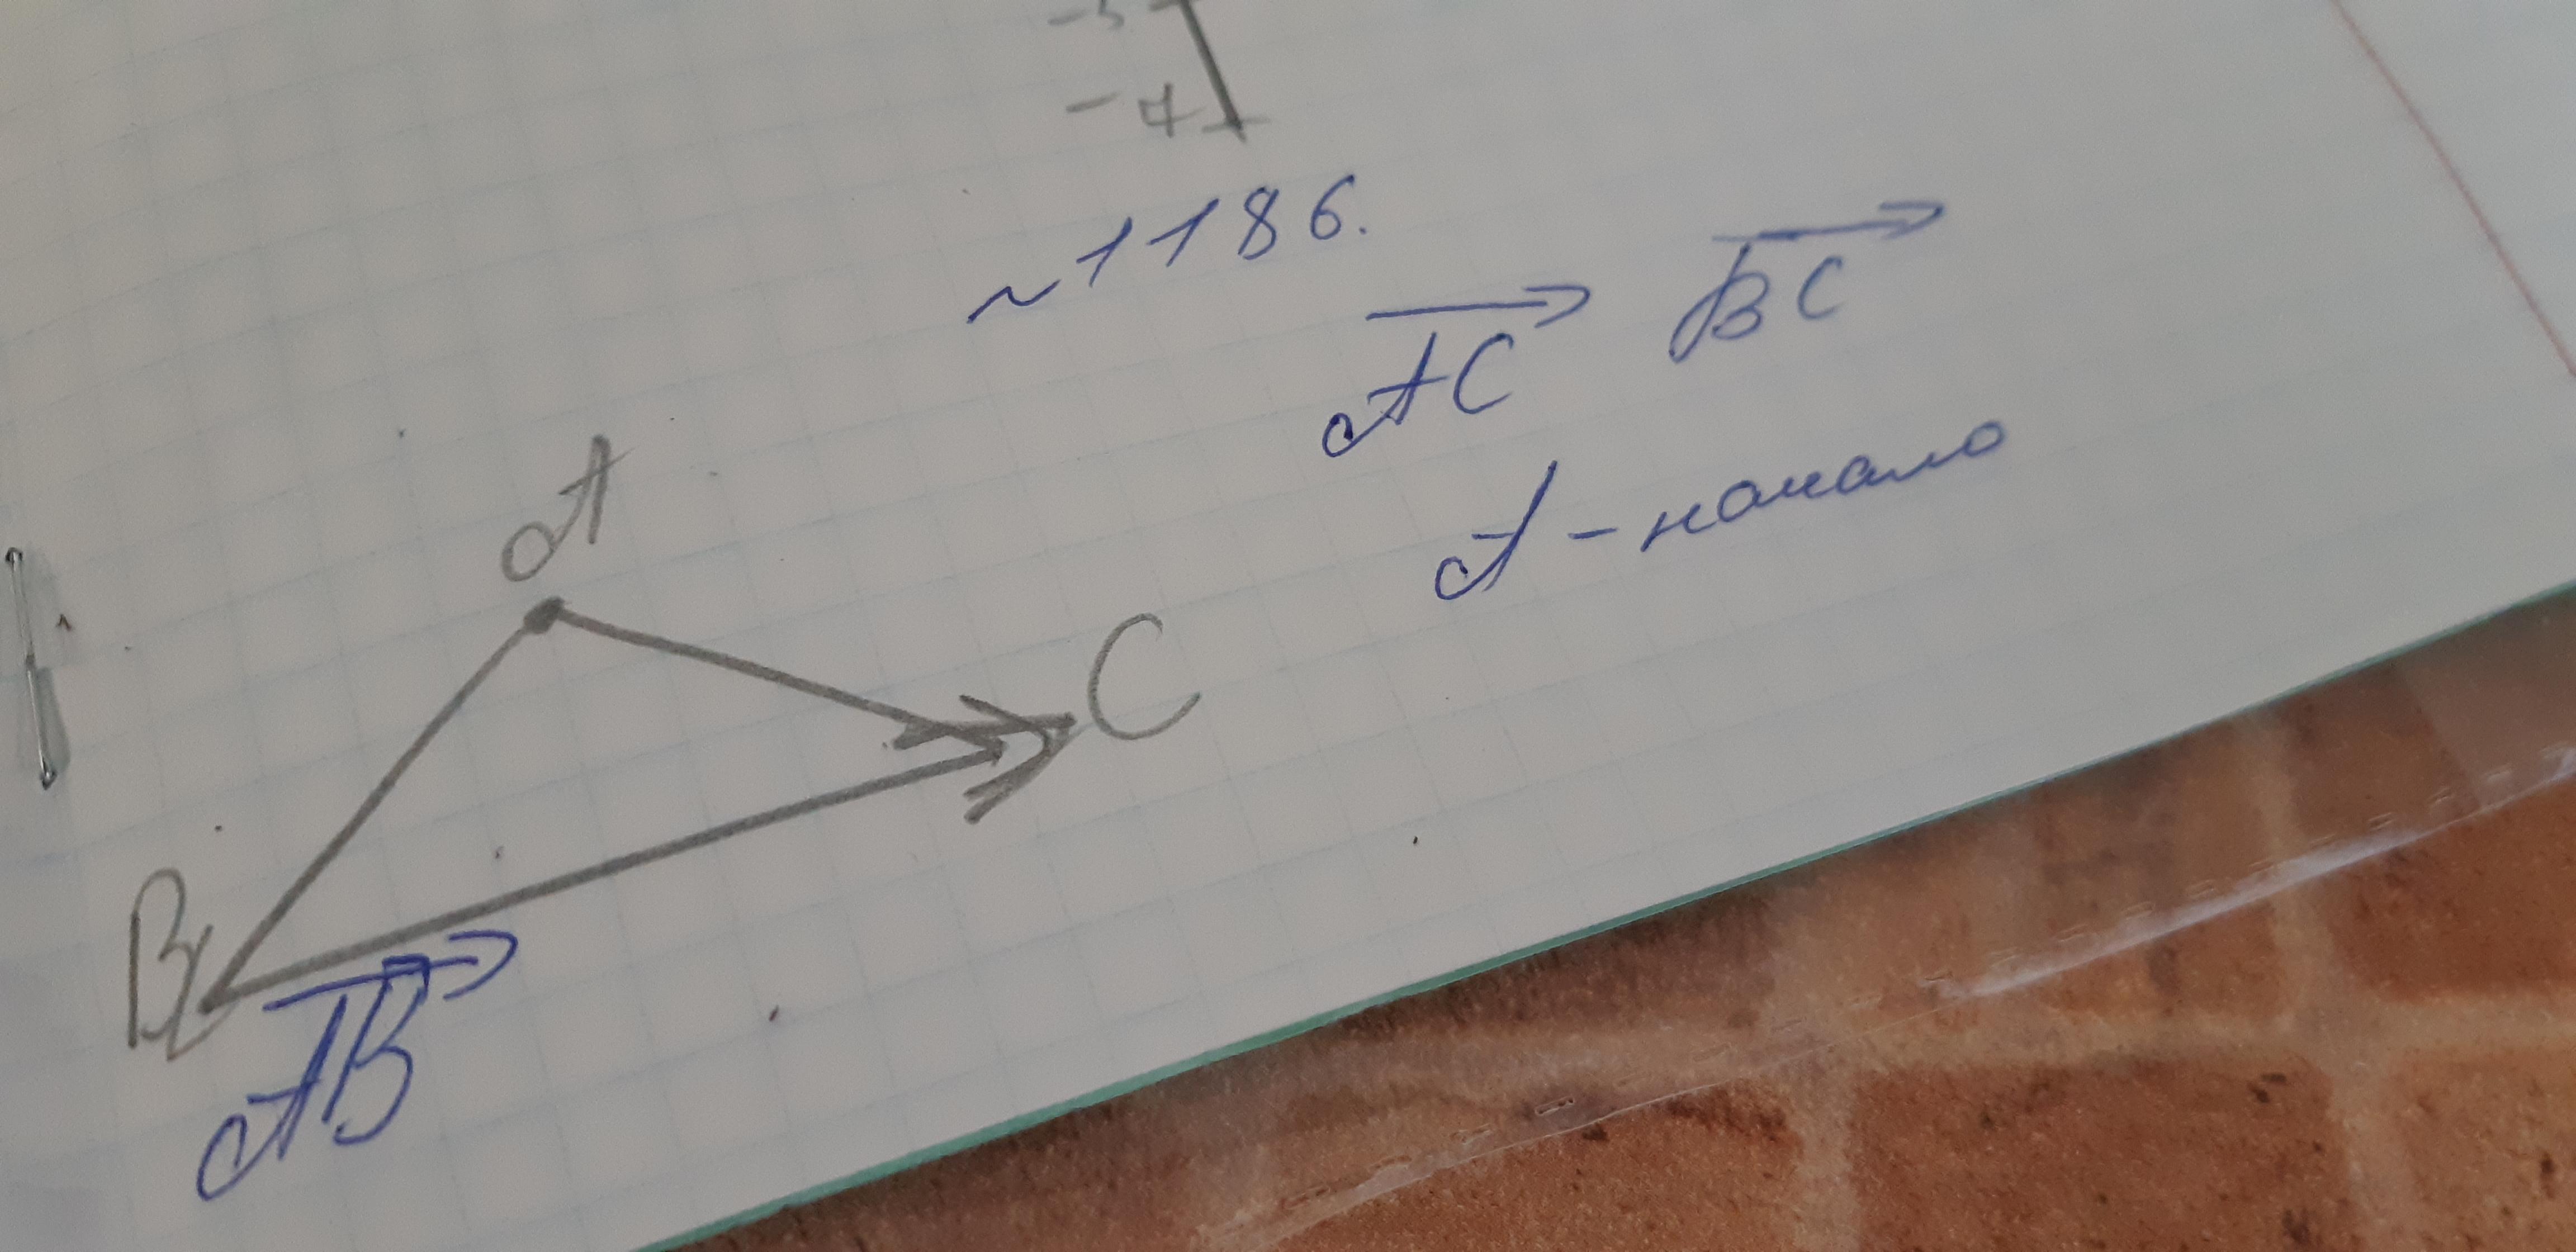 -4
~1186.
AC BC
A - начало
A
C
B
AB